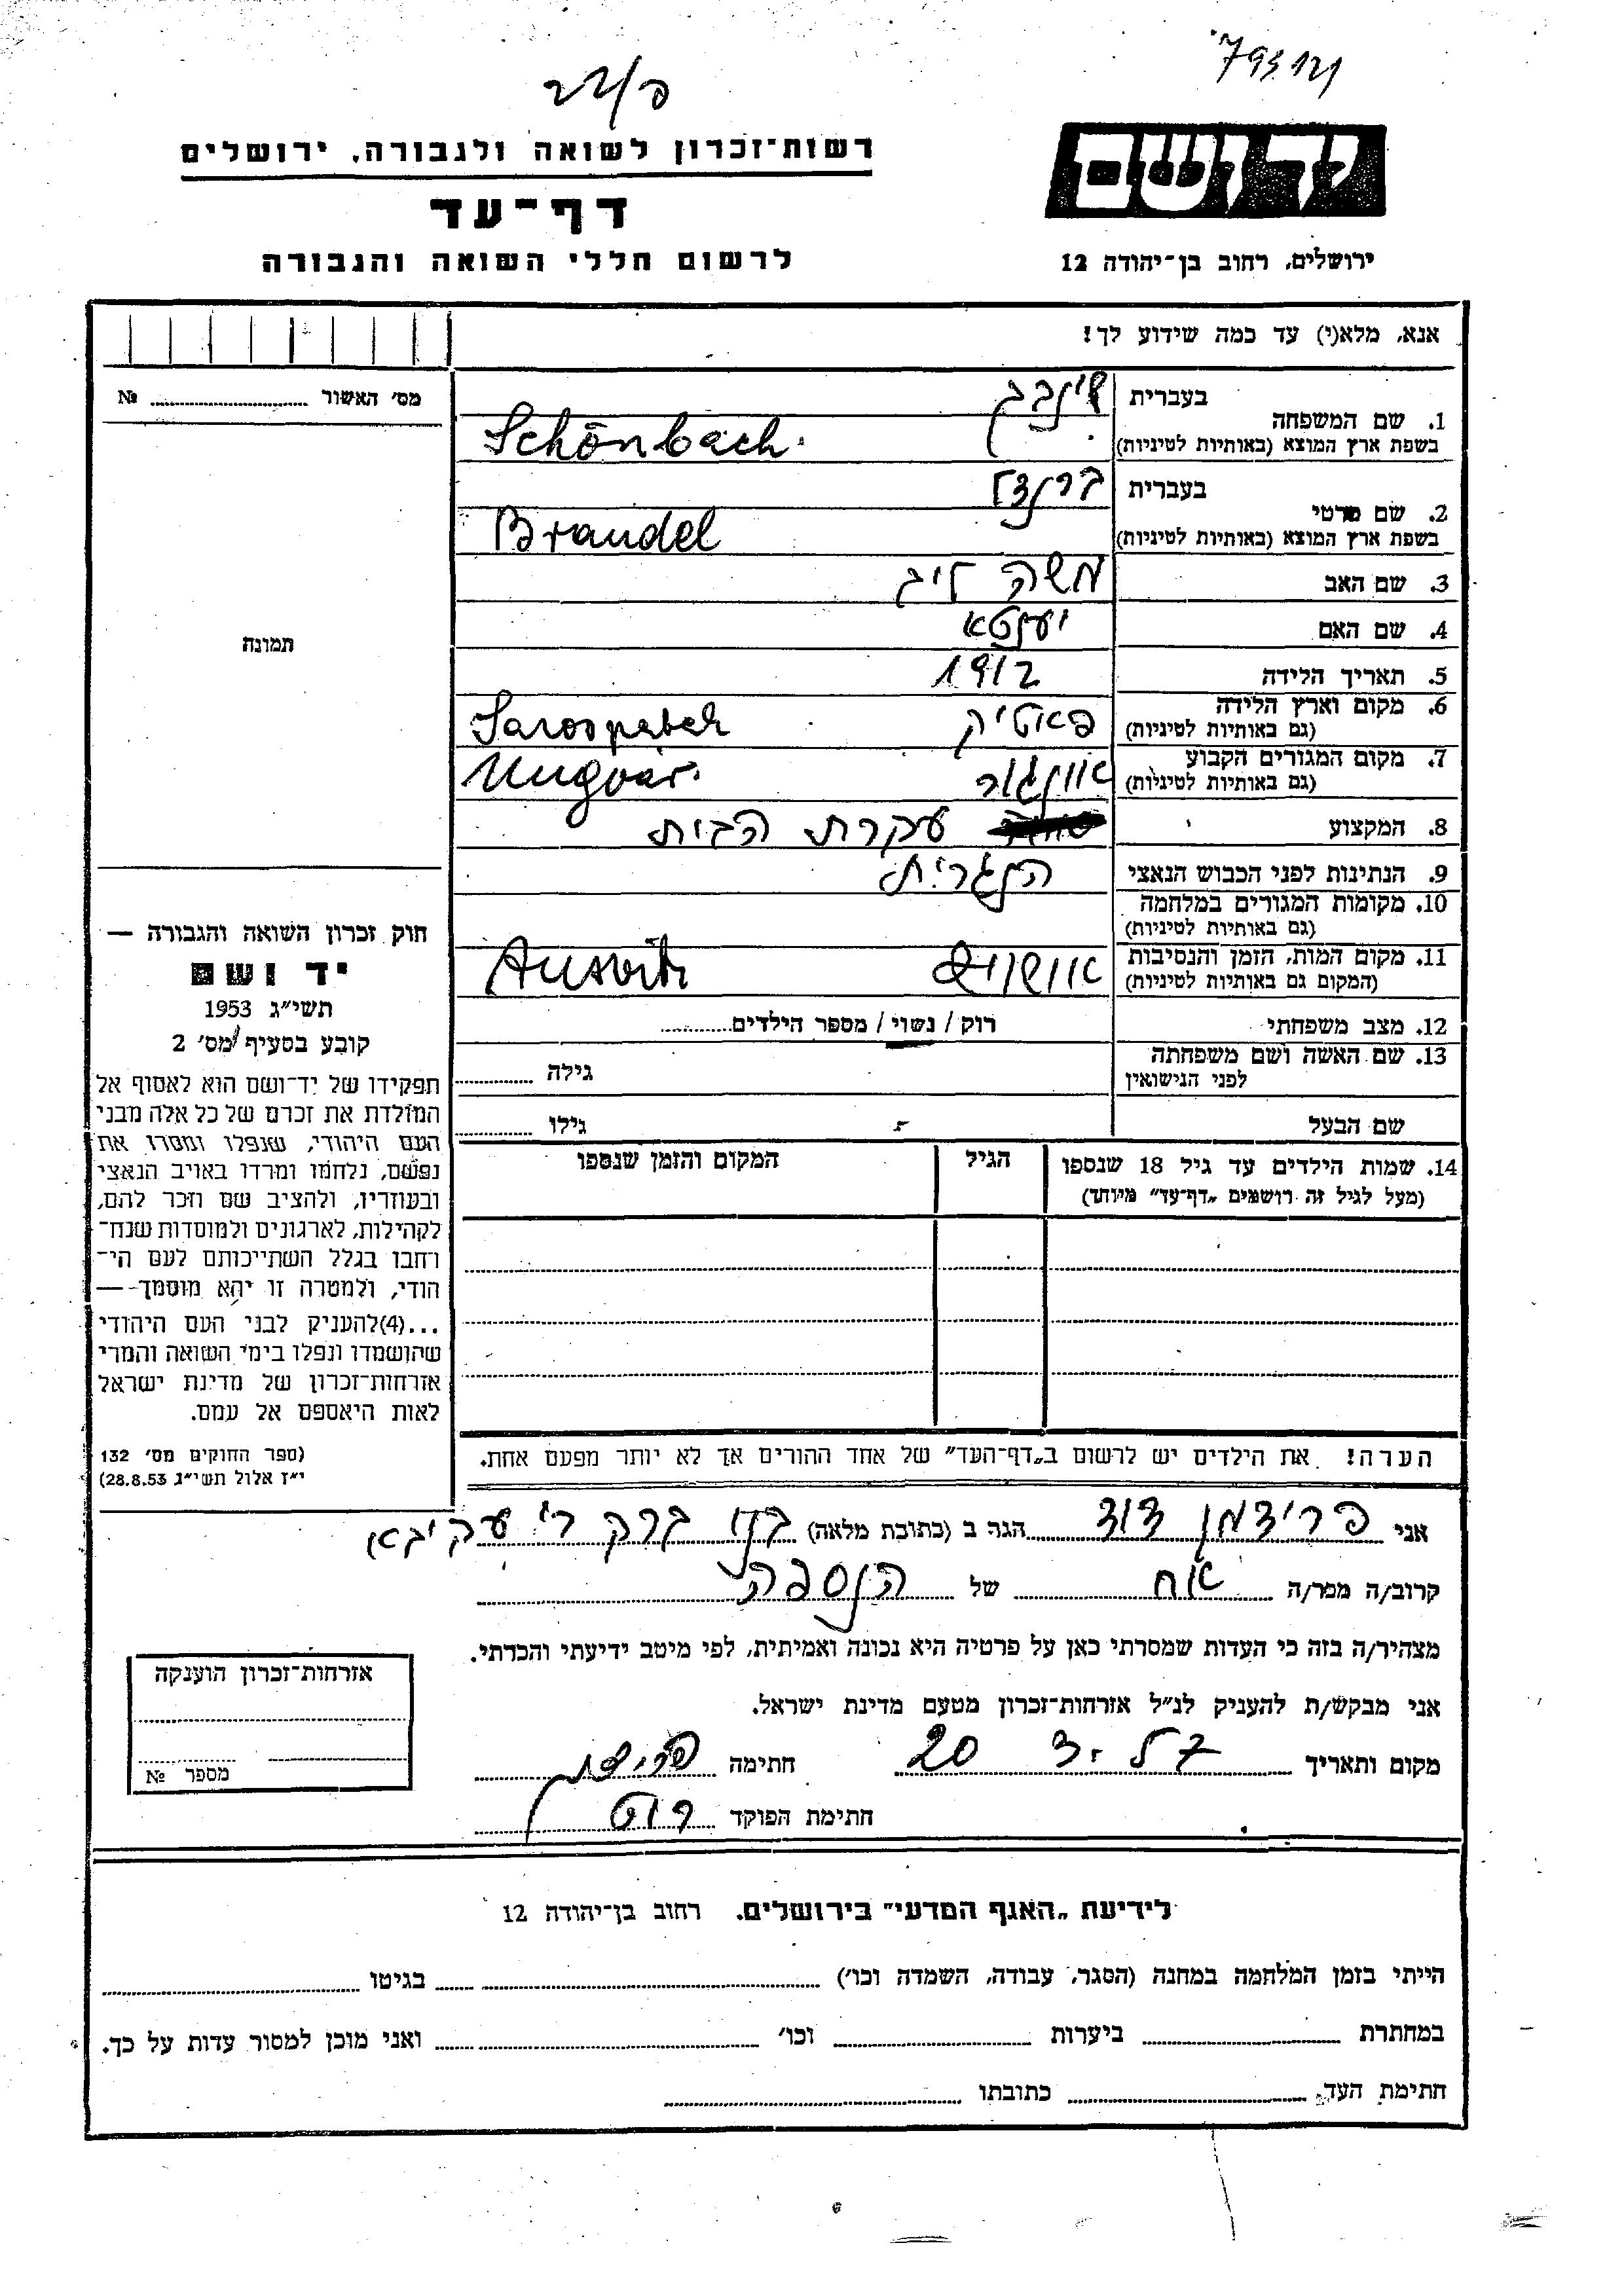 פ/22
רשות־זכרון לשואה ולגבורה, ירושלים
דף־עד
לרשום חללי השואה והגבורה
יד ושם
ירושלים, רחוב בן־יהודה 12
אנא, מלא(י) עד כמה שידוע לך!
מס׳ האשור № 
1. שם המשפחה
בעברית
בשפת ארץ המוצא (באותיות לטיניות)
Schönbach.
2. שם פרטי
בעברית ברנדל
בשפת ארץ המוצא (באותיות לטיניות)
Brandel
3. שם האב משה ליב
4. שם האם יענטא
5. תאריך הלידה 1912
6. מקום וארץ הלידה
(גם באותיות לטיניות)
פאטיק Sarospatak
7. מקום המגורים הקבוע
(גם באותיות לטיניות)
אונגור Ungvár.
8. המקצוע עקרת הבית
9. הנתינות לפני הכבוש הנאצי הנגרית
10. מקומות המגורים במלחמה
(גם באותיות לטיניות)
11. מקום המות, הזמן והנסיבות
(המקום גם באותיות לטיניות)
אושויץ Ausvitz
12. מצב משפחתי רוק / נשוי / מספר הילדים
13. שם האשה ושם משפחתה
לפני הנישואין
גילה
שם הבעל גילו
14. שמות הילדים עד גיל 18 שנספו
(מעל לגיל זה רושמים „דף־עד״ מיוחד)
הגיל
המקום והזמן שנספו
הערה! את הילדים יש לרשום ב„דף־העד״ של אחד ההורים אך לא יותר מפעם אחת.
תמונה
חוק זכרון השואה והגבורה —
יד ושם
תשי״ג 1953
קובע בסעיף מס׳ 2
תפקידו של יד־ושם הוא לאסוף אל
המולדת את זכרם של כל אלה מבני
העם היהודי, שנפלו ומסרו את
נפשם, נלחמו ומרדו באויב הנאצי
ובעוזריו, ולהציב שם וזכר להם,
לקהילות, לארגונים ולמוסדות שנח־
רחבו בגלל השתייכותם לעם הי־
הודי, ולמטרה זו יהא מוסמך —
...(4)להעניק לבני העם היהודי
שהושמדו ונפלו בימי השואה והמרי
אזרחות־זכרון של מדינת ישראל
לאות היאספם אל עמם.
(ספר החוקים מס׳ 132
י״ז אלול תשי״ג 28.8.53)
אני פרידמן דוד הגר ב (כתובת מלאה) בני ברק ר׳ עקיבא
קרוב/ה מכר/ה אח של הנספה
מצהיר/ה בזה כי העדות שמסרתי כאן על פרטיה היא נכונה ואמיתית, לפי מיטב ידיעתי והכרתי.
אני מבקש/ת להעניק לנ״ל אזרחות־זכרון מטעם מדינת ישראל.
מקום ותאריך חתימה
חתימת הפוקד
אזרחות־זכרון הוענקה
מספר №
לידיעת „האגף המדעי״ בירושלים. רחוב בן־יהודה 12
הייתי בזמן המלחמה במחנה (הסגר, עבודה, השמדה וכו׳) בגיטו
במחתרת ביערות וכו׳ ואני מוכן למסור עדות על כך.
חתימת העד כתובתו